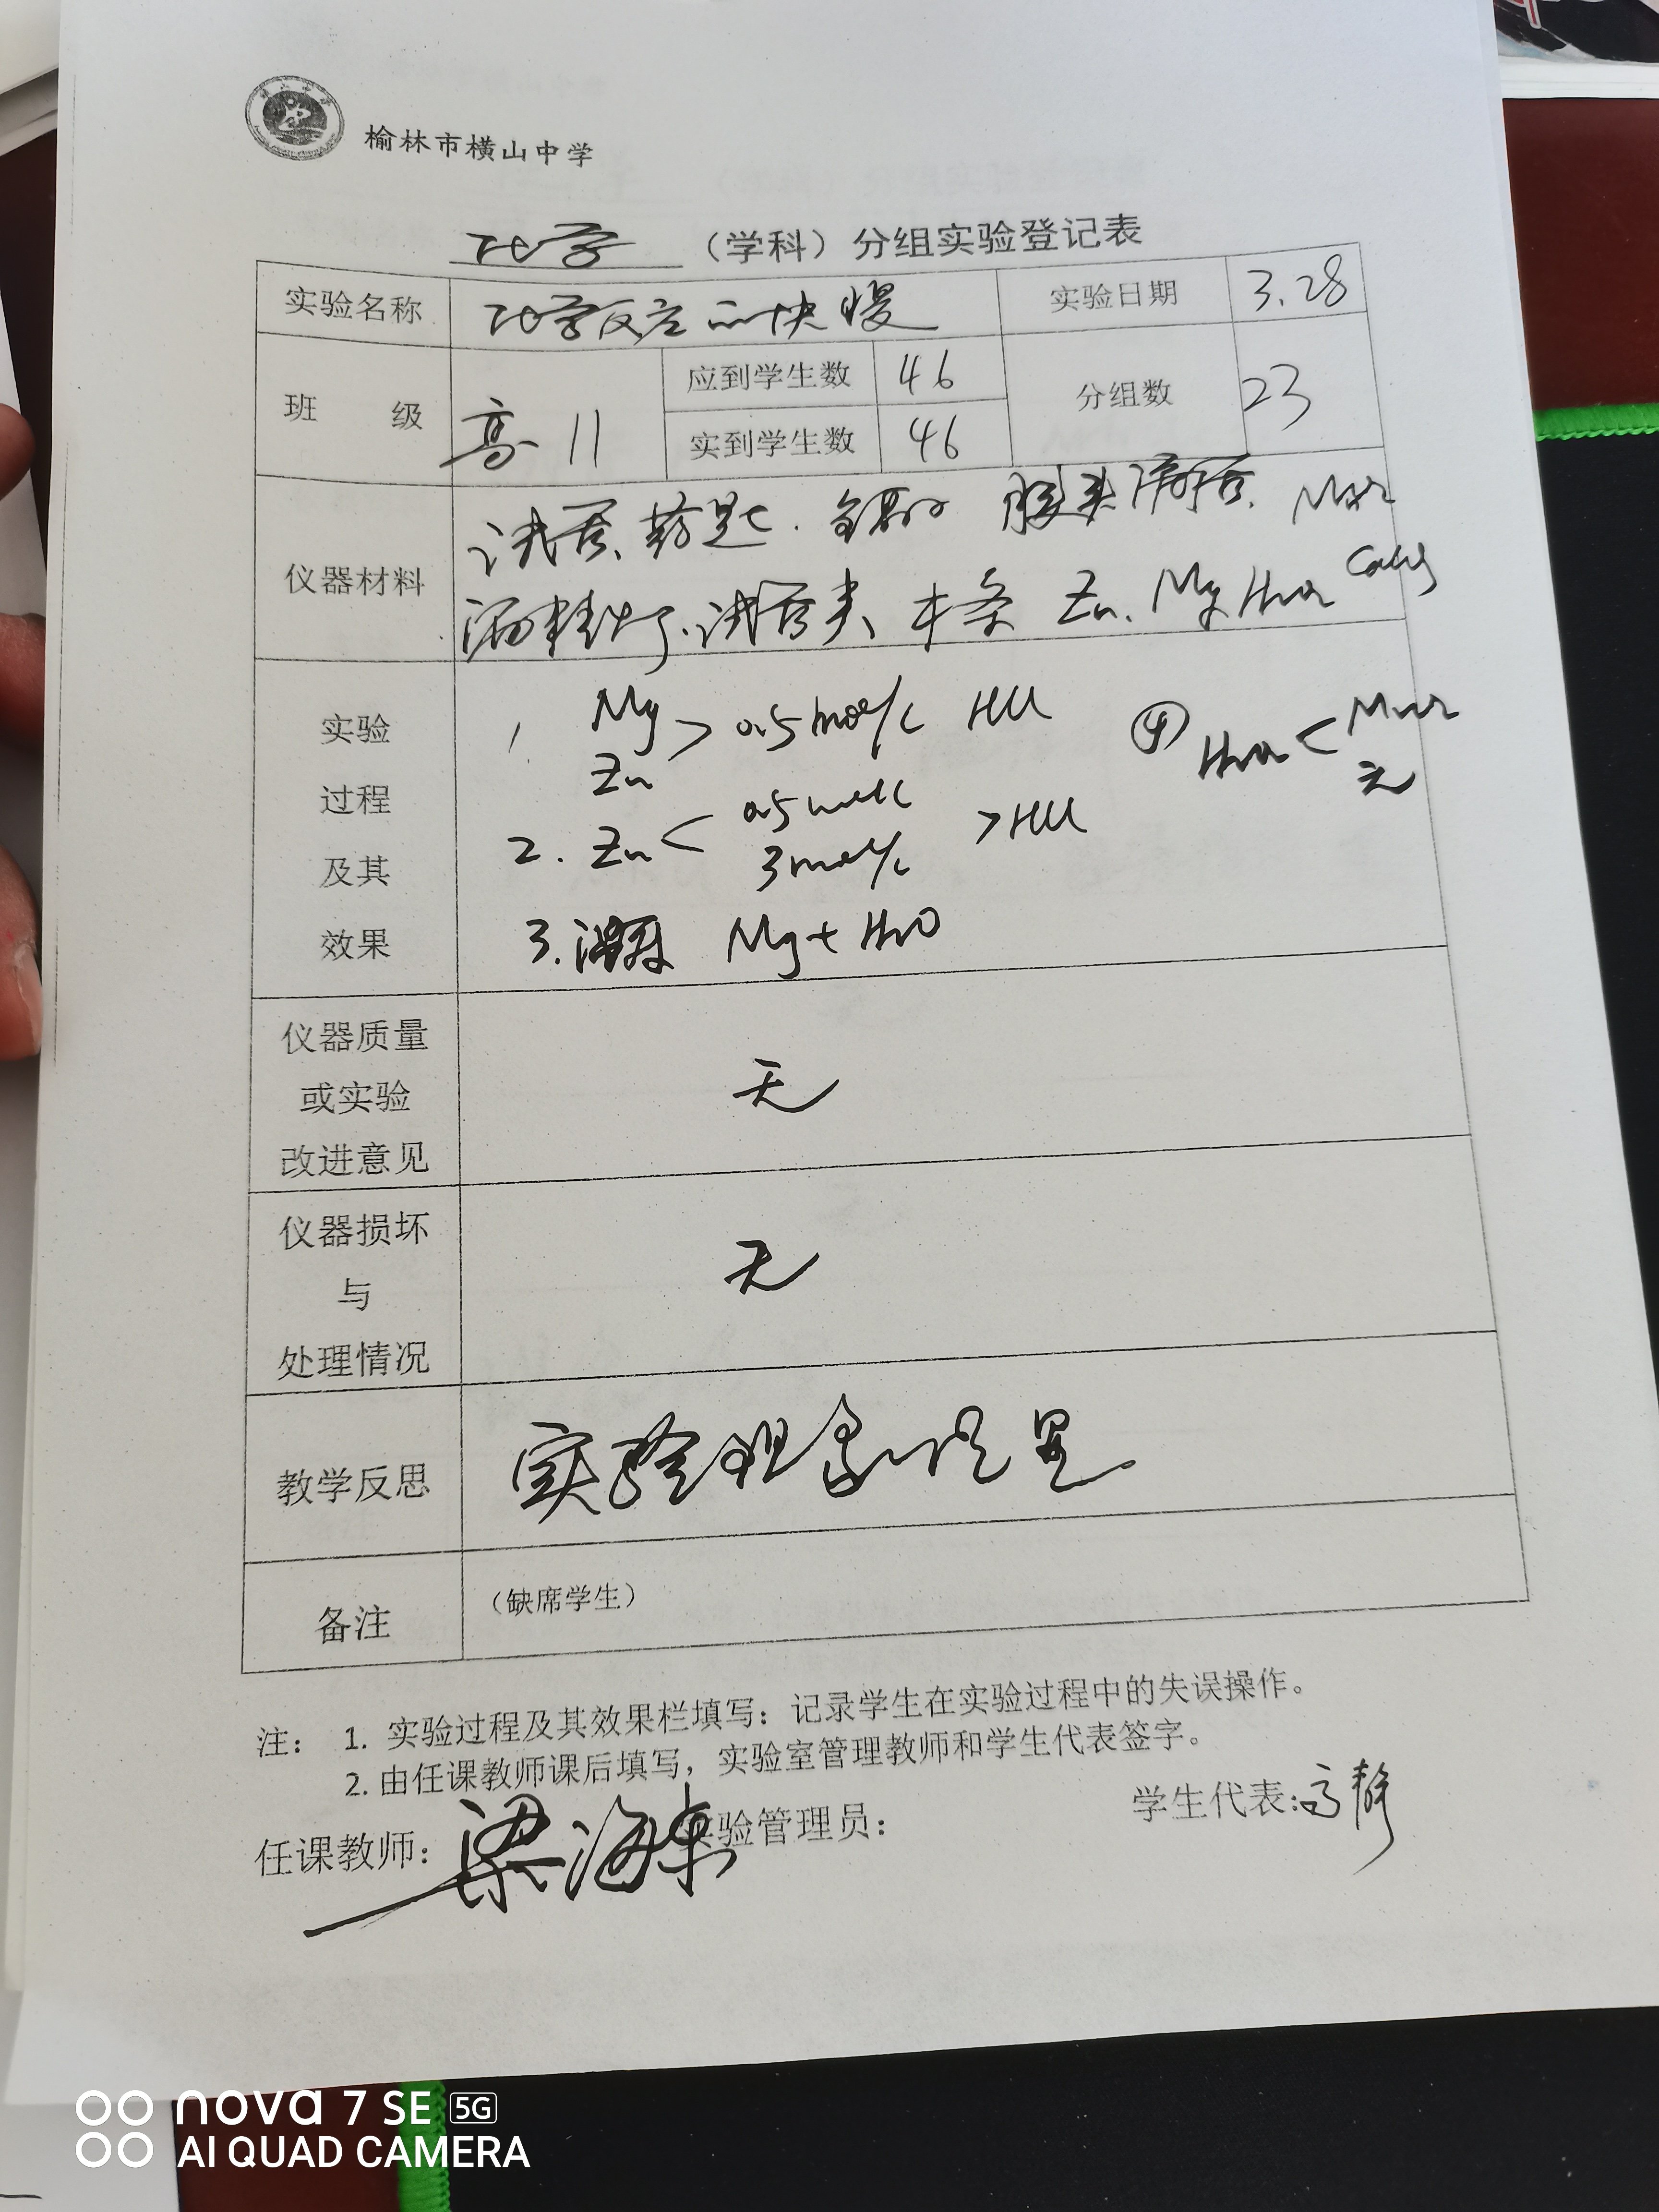 榆林市横山中学
化学 （学科）分组实验登记表
实验名称 化学反应的快慢 实验日期 3.28
班 级 高一11 应到学生数 46 分组数 23
实到学生数 46
仪器材料 试管、药匙、镊子 胶头滴管、
酒精灯、试管夹、木条 Zn、Mg
实验
过程
及其
效果
1、Mg Zn > 0.5mol/L HCl
2. Zn < 0.5mol/L 3mol/L > HCl
3. Mg+H2O
④ H2O2 < MnO2 无
仪器质量
或实验
改进意见
无
仪器损坏
与
处理情况
无
教学反思 实验现象明显.
备注 （缺席学生）
注： 1. 实验过程及其效果栏填写：记录学生在实验过程中的失误操作。
2. 由任课教师课后填写，实验室管理教师和学生代表签字。
任课教师：梁海东 实验管理员： 学生代表：高静
nova 7 SE 5G
AI QUAD CAMERA